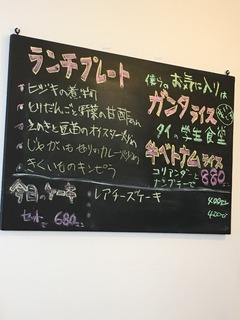 ランチプレート
ヒジキの煮物
とりだんごと野菜の甘酢あん
じゃがいもとせりのカレー炒め
きくいものキンピラ
僕らのお気に入りは
ガンタライス
タイの学生食堂
牛ベトナムライス
コリアンダーと
ナンプラーで
880
今日のケーキ
レアチーズケーキ
400
420
セット
で 680